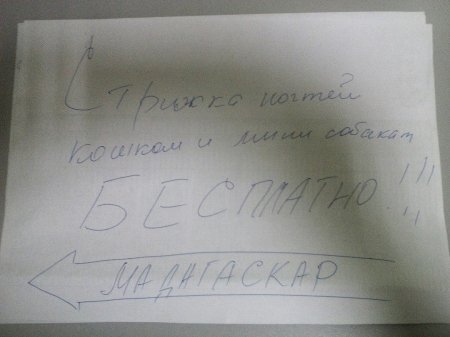 Стрижка ногтей
кошкам и мини собакам
БЕСПЛАТНО!!!
МАДАГАСКАР